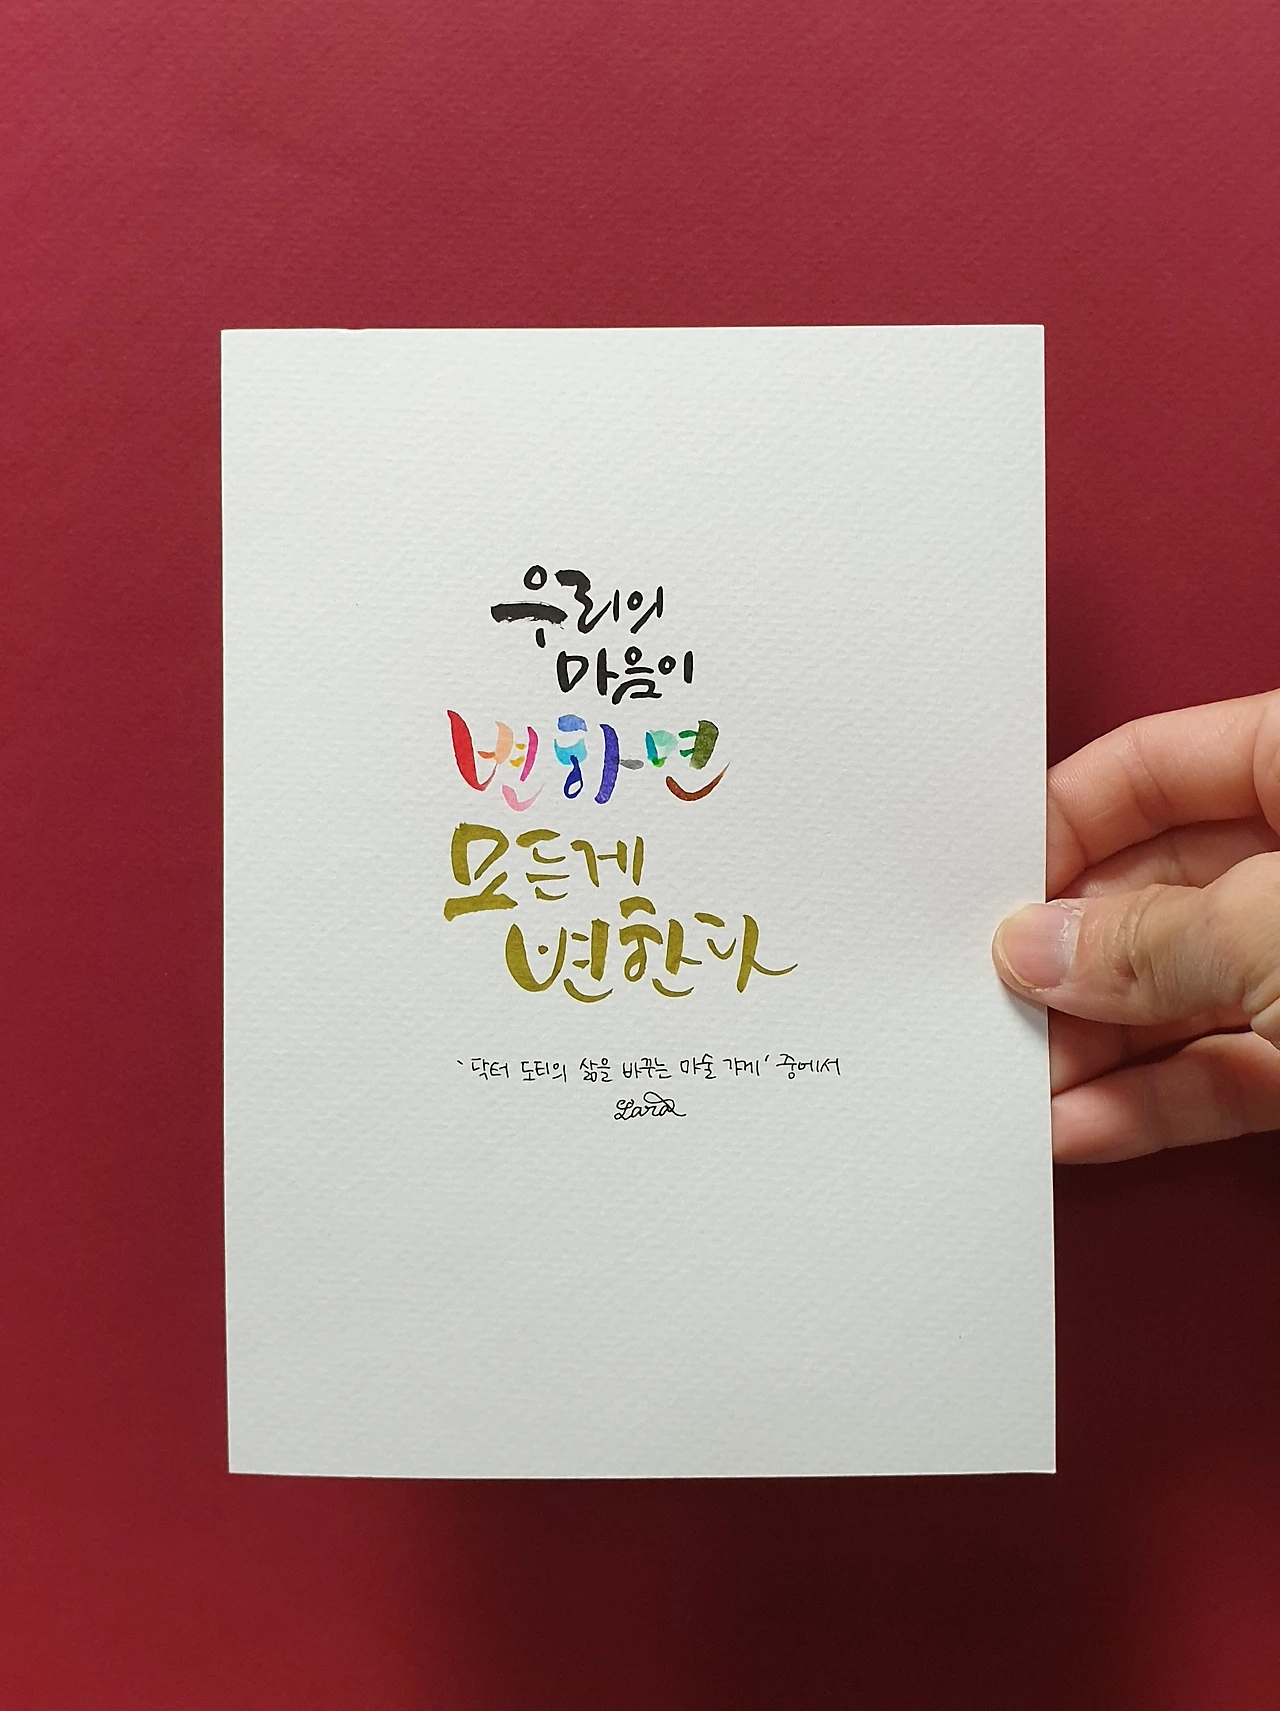 우리의
마음이
변하면
모든게
변한다
'닥터 도티의 삶을 바꾸는 마술 가게' 중에서
Lara